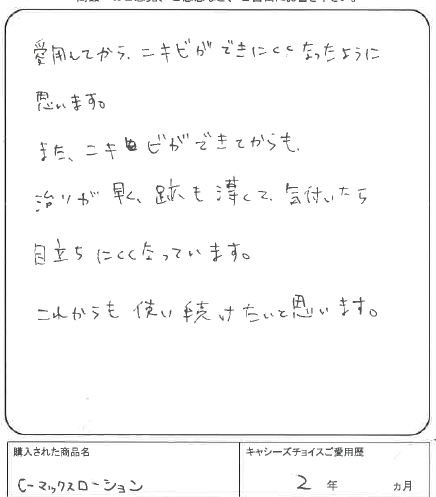 愛用してから、ニキビができにくくなったように
思います。
また、ニキビができてからも、
治りが早く、跡も薄くて、気付いたら
目立ちにくくなっています。
これからも使い続けたいと思います。
購入された商品名
キャシーズチョイスご愛用歴
C-マックスローション
2年 ヵ月